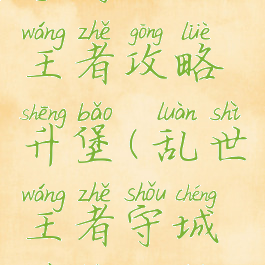 wáng zhě gōng lüè
王者攻略
shēng bǎo luàn shì
升堡(乱世
wáng zhě shǒu chéng
王者守城